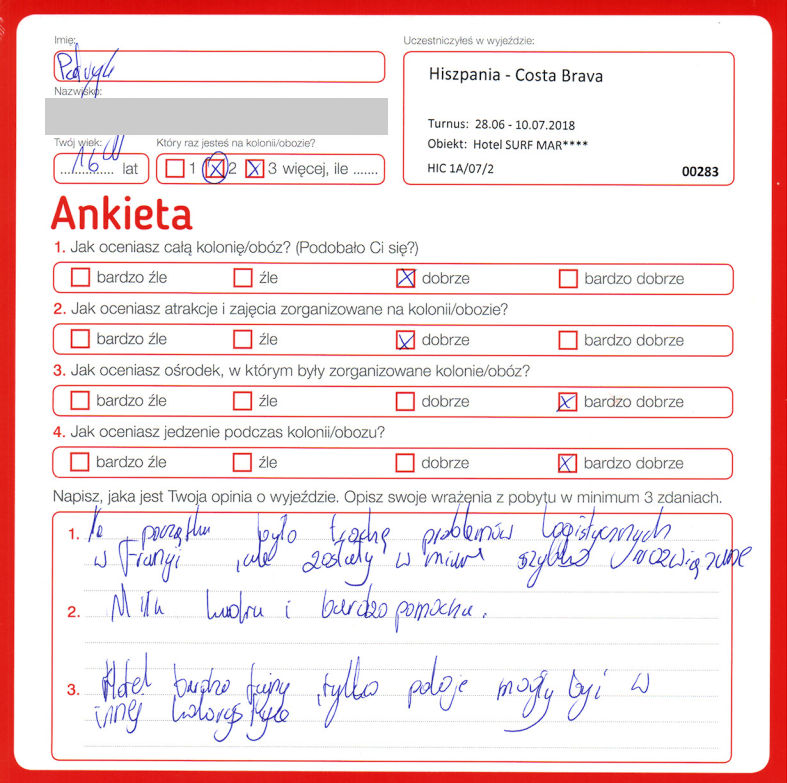 Imię:
Uczestniczyłeś w wyjeździe:
Patryk
Hiszpania - Costa Brava
Nazwisko:
Turnus: 28.06 - 10.07.2018
Obiekt: Hotel SURF MAR****
HIC 1A/07/2
00283
Twój wiek:
Który raz jesteś na kolonii/obozie?
16 lat
1 2 3 więcej, ile .......
Ankieta
1. Jak oceniasz całą kolonię/obóz? (Podobało Ci się?)
bardzo źle źle dobrze bardzo dobrze
2. Jak oceniasz atrakcje i zajęcia zorganizowane na kolonii/obozie?
bardzo źle źle dobrze bardzo dobrze
3. Jak oceniasz ośrodek, w którym były zorganizowane kolonie/obóz?
bardzo źle źle dobrze bardzo dobrze
4. Jak oceniasz jedzenie podczas kolonii/obozu?
bardzo źle źle dobrze bardzo dobrze
Napisz, jaka jest Twoja opinia o wyjeździe. Opisz swoje wrażenia z pobytu w minimum 3 zdaniach.
1. Na początku było trochę problemów logistycznych
w Francji, ale zostały w miarę szybko rozwiązane
2. Miła kadra i bardzo pomocna.
3. Hotel bardzo fajny, tylko pokoje mogły być w
innej kolorystyce